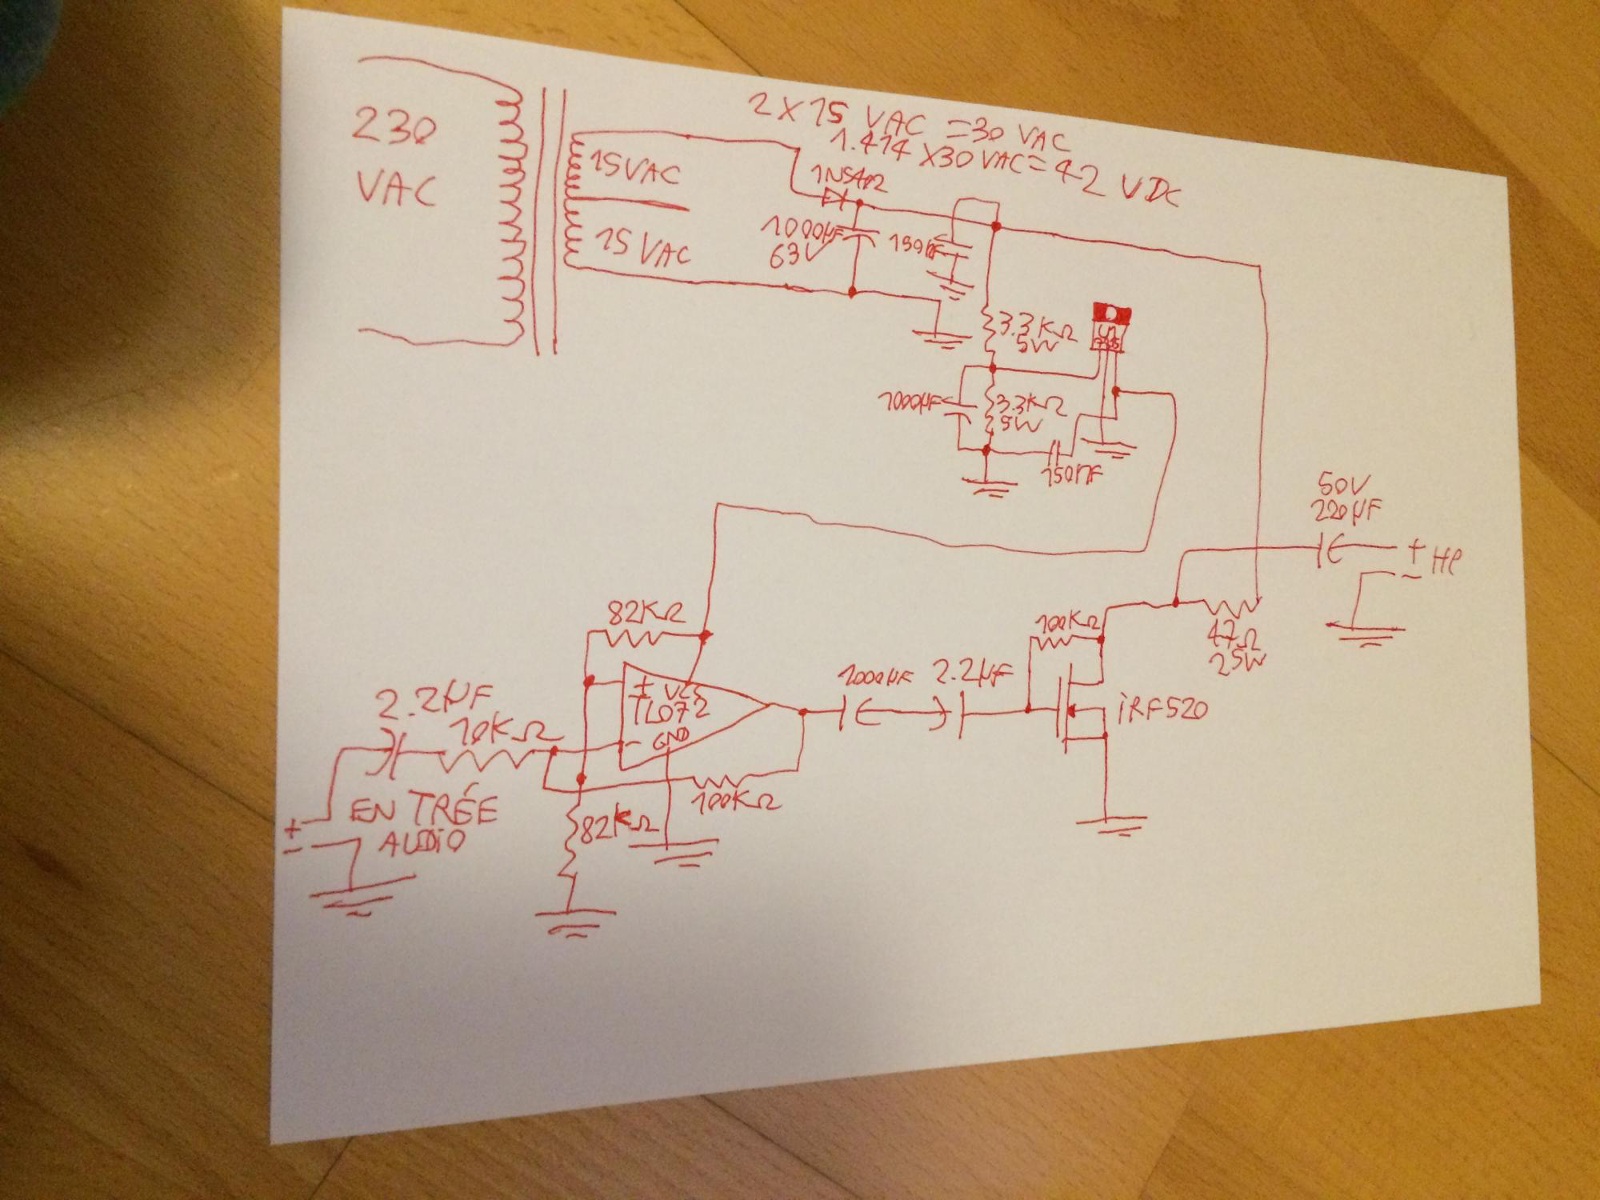 230
VAC
15VAC
15VAC
2X15 VAC =30 VAC
1.414 X30 VAC=42 VDC
1N5402
1000µF
63V
150nF
3.3KΩ
5W
1000µF
3.3KΩ
5W
150nF
50V
220µF
+ HP
-
47Ω
25W
82KΩ
+ VCC
TL072
- GND
2.2µF
10KΩ
100KΩ
82KΩ
1000µF
2.2µF
100KΩ
iRF520
+
-
ENTRÉE
AUDiO